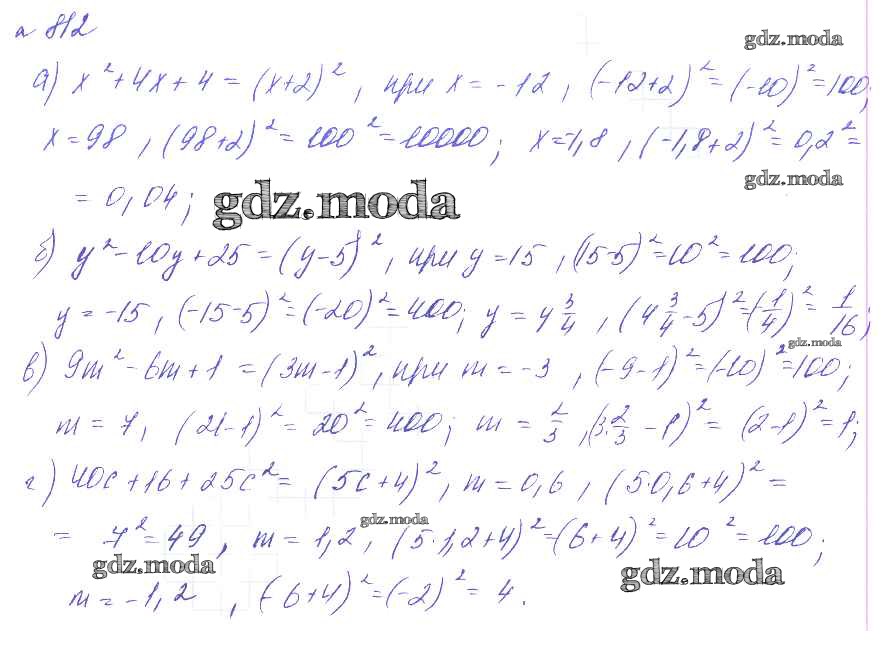 № 812
gdz.moda
а) x² + 4x + 4 = (x+2)², при x = -12, (-12+2)² = (-10)² = 100;
x = 98, (98+2)² = 100² = 10000; x = -1,8, (-1,8+2)² = 0,2² =
gdz.moda
= 0,04; gdz.moda
б) y² - 10y + 25 = (y-5)², при y = 15, (15-5)² = 10² = 100;
y = -15, (-15-5)² = (-20)² = 400; y = 4 3/4, (4 3/4 - 5)² = (1/4)² = 1/16;
gdz.moda
в) 9m² - 6m + 1 = (3m-1)², при m = -3, (-9-1)² = (-10)² = 100;
m = 7, (21-1)² = 20² = 400; m = 2/3, (3·2/3 - 1)² = (2-1)² = 1;
г) 40c + 16 + 25c² = (5c+4)², m = 0,6, (5·0,6+4)² =
gdz.moda
= 7² = 49, m = 1,2, (5·1,2+4)² = (6+4)² = 10² = 100;
gdz.moda gdz.moda
m = -1,2, (-6+4)² = (-2)² = 4.